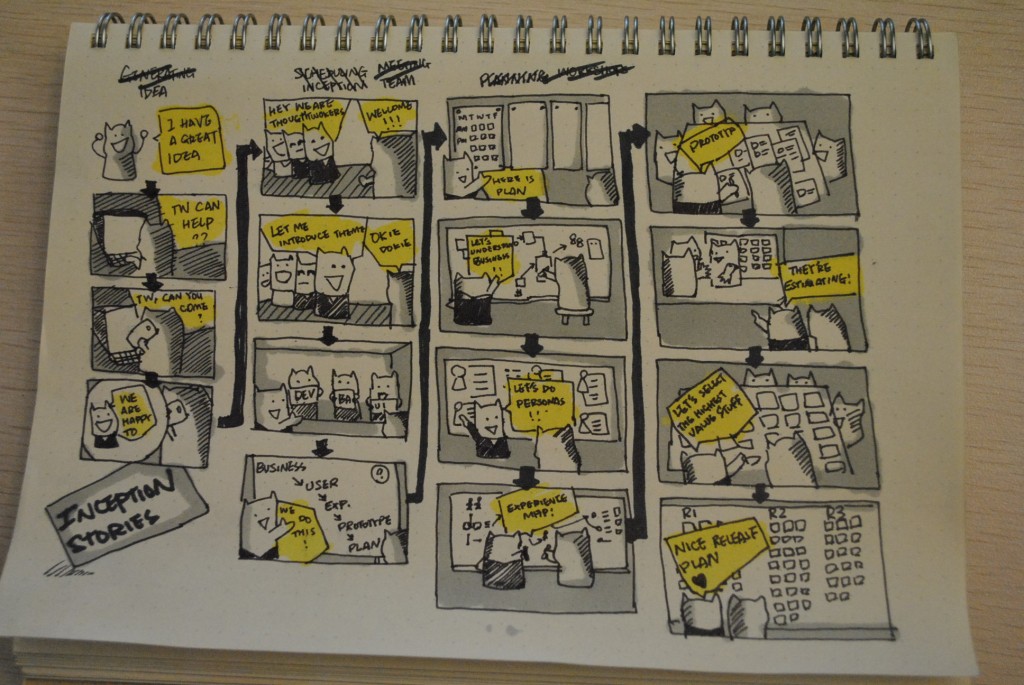 IDEA
I HAVE
A GREAT
IDEA
TW CAN
HELP
??
TW, CAN YOU
COME
?
WE
ARE
HAPPY
TO
INCEPTION
STORIES
INCEPTION
TEAM
HEY WE ARE
THOUGHTWORKERS
WELCOME
!!!
LET ME
INTRODUCE THEM
OKIE
DOKIE
DEV
BA
UI
BUSINESS
USER
EXP.
PROTOTYPE
PLAN
WE
DO
THIS
!
PLANNING
M T W T F
HERE IS
PLAN
LET'S
UNDERSTAND
BUSINESS
!!
LET'S DO
PERSONAS
!!
EXPERIENCE
MAP!
PROTOTYP
THEY'RE
ESTIMATING!
LET'S SELECT
THE HIGHEST
VALUE STUFF
R1
R2
R3
NICE RELEASE
PLAN